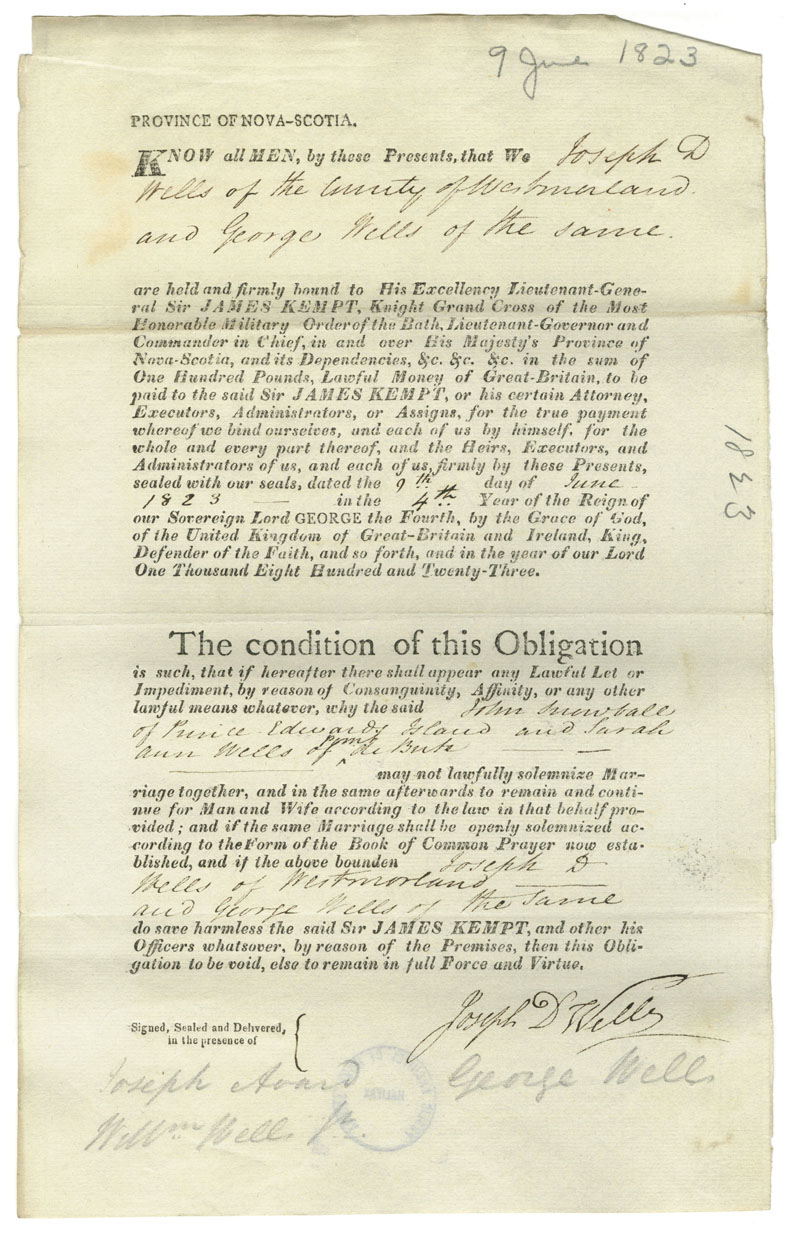 9 June 1823
PROVINCE OF NOVA-SCOTIA.
KNOW all MEN, by these Presents, that We Joseph D
Wells of the County of Westmorland.
and George Wells of the same.
are held and firmly bound to His Excellency Lieutenant-Gene-
ral Sir JAMES KEMPT, Knight Grand Cross of the Most
Honorable Military Order of the Bath, Lieutenant-Governor and
Commander in Chief, in and over His Majesty's Province of
Nova-Scotia, and its Dependencies, &c. &c. &c. in the sum of
One Hundred Pounds, Lawful Money of Great-Britain, to be
paid to the said Sir JAMES KEMPT, or his certain Attorney,
Executors, Administrators, or Assigns, for the true payment
whereof we bind ourselves, and each of us by himself, for the
whole and every part thereof, and the Heirs, Executors, and
Administrators of us, and each of us, firmly by these Presents,
sealed with our seals, dated the 9th day of June
1823 — in the 4th Year of the Reign of
our Sovereign Lord GEORGE the Fourth, by the Grace of God,
of the United Kingdom of Great-Britain and Ireland, King,
Defender of the Faith, and so forth, and in the year of our Lord
One Thousand Eight Hundred and Twenty-Three.
1823
The condition of this Obligation
is such, that if hereafter there shall appear any Lawful Let or
Impediment, by reason of Consanguinity, Affinity, or any other
lawful means whatever, why the said John Snowball
of Prince Edwards Island and Sarah
ann Wells of Pom de Buk —
may not lawfully solemnize Mar-
riage together, and in the same afterwards to remain and conti-
nue for Man and Wife according to the law in that behalf pro-
vided; and if the same Marriage shall be openly solemnized ac-
cording to the Form of the Book of Common Prayer now esta-
blished, and if the above bounden Joseph D
Wells of Westmorland
and George Wells of the Same
do save harmless the said Sir JAMES KEMPT, and other his
Officers whatsover, by reason of the Premises, then this Obli-
gation to be void, else to remain in full Force and Virtue.
Joseph D Wells
Signed, Sealed and Delivered,
in the presence of
Joseph Avard
George Wells
Willm Wells Jr.